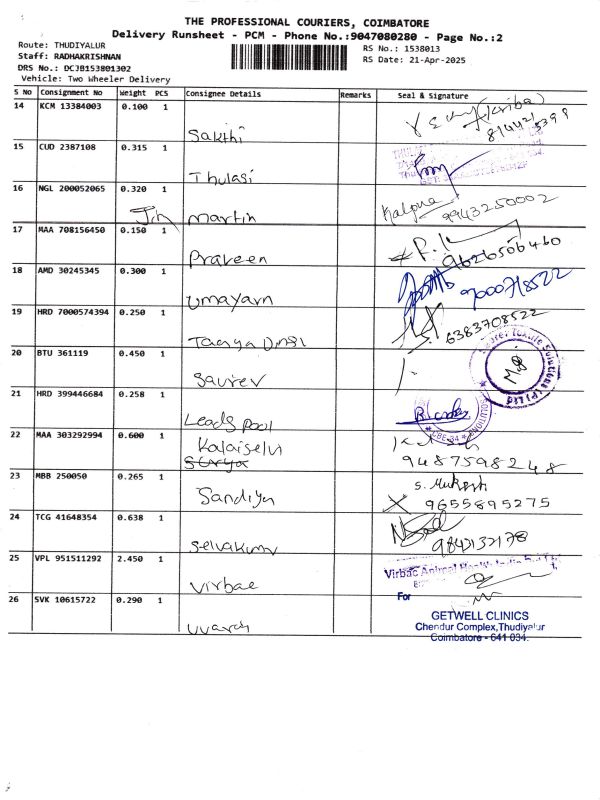 THE PROFESSIONAL COURIERS, COIMBATORE
Delivery Runsheet - PCM - Phone No.:9047080280 - Page No.:2
Route: THUDIYALUR
RS No.: 1538013
Staff: RADHAKRISHNAN
RS Date: 21-Apr-2025
DRS No.: DCJB153801302
Vehicle: Two Wheeler Delivery
S No Consignment No Weight PCS Consignee Details Remarks Seal & Signature
14 KCM 13384003 0.100 1
Sakthi
15 CUD 2387108 0.315 1
Thulasi
16 NGL 200052065 0.320 1 Kalpana 9943250002
Martin
17 MAA 708156450 0.150 1
Praveen 9626506460
18 AMD 30245345 0.300 1
Umayarn 9000718522
19 HRD 7000574394 0.250 1 6383708522
20 BTU 361119 0.450 1
Saurev
21 HRD 399446684 0.258 1
Leads pool
22 MAA 303292994 0.600 1
Kalaiselvi
Surya 9487598248
23 MBB 250050 0.265 1 S. Mukesh
Sandiya 9655895275
24 TCG 41648354 0.638 1
Selvakumr 9842132178
25 VPL 951511292 2.450 1 Virbac Animal Health India
Virbae
For
26 SVK 10615722 0.290 1
GETWELL CLINICS
Chendur Complex,Thudiyalur
Coimbatore - 641 034.